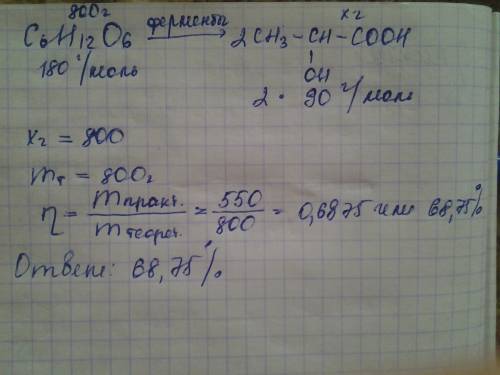 800г ферменты x г
C₆H₁₂O₆ → 2CH₃ – CH – COOH
OH
180 г/моль 2 · 90 г/моль
x г = 800
mт = 800г
η = mпракт. / mтеорет. = 550 / 800 = 0,6875 или 68,75%
Ответ: 68,75%